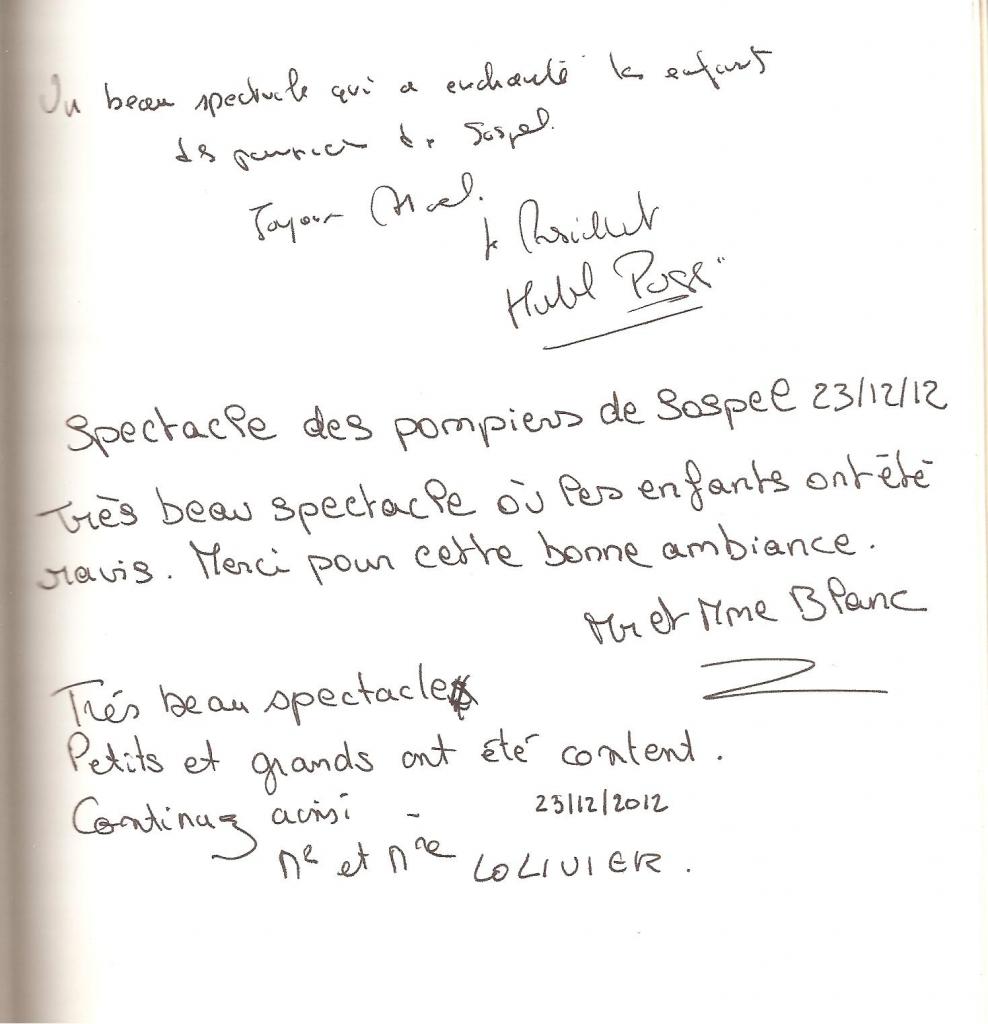 Un beau spectacle qui a enchanté les enfants
des pompiers de Sospel.
Joyeux Noel.
le President
Hubl
Spectacle des pompiers de Sospel 23/12/12
Très beau spectacle où les enfants ont été
ravis. Merci pour cette bonne ambiance.
Mr et Mme Blanc
Trés beau spectacle
Petits et grands ont été content.
Continuez ainsi -
23/12/2012
Mr et Mme LOLIVIER.